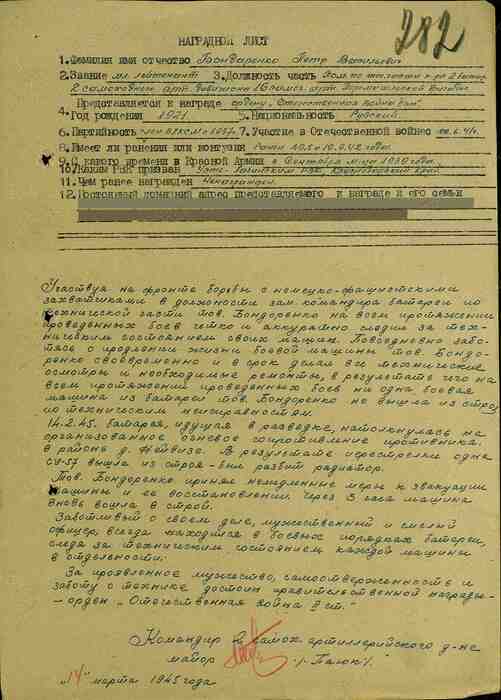 282
НАГРАДНОЙ ЛИСТ
1.Фамилия имя отчество Бондаренко Петр Васильевич
2.Звание мл. лейтенант 3.Должность часть Зам. по тех части к-ра батар
2 самоходного арт. Дивизиона 16 арт. Бригады
Представляется к награде ордену „Отечественная Война
4.Год рождения 1921 5.Национальность Русский
6.Партийность член ВЛКСМ с 1937г. 7.Участие в Отечественной войне с
8.Имеет ли ранения или контузии Ранен
9.С какого времени в Красной Армии с Сентября м-ца 1939 года
10.Каким РВК призван Усть-Лабинским РВК, Краснодарский край
11.Чем ранее награжден Ненагражден
12.Постоянный домашний адрес представляемого к награде и его семьи
Участвуя на фронте борьбы с немецко-фашистскими
захватчиками в должности зам. командира батареи по
технической части тов. Бондоренко на всем протяжении
проведенных боев четко и аккуратно следил за тех-
ническим состоянием своих машин. Повседневно забо-
тясь о продлении жизни боевой машины тов. Бондо-
ренко своевременно и в срок делал все технические
осмотры и необходимые ремонты, в результате чего на
всем протяжении проведенных боев ни одна боевая
машина из батареи тов. Бондоренко не вышла из строя
по техническим неисправностям.
14.2.45. батарея, идущая в разведке, натолкнулась на
организованное огневое сопротивление противника.
в районе д. В результате перестрелки одна
СУ-57 вышла из строя - был разбит радиатор.
Тов. Бондоренко принял немедленные меры к эвакуации
машины и ее восстановлении. Через 3 часа машина
вновь вошла в строй.
Заботливый о своем деле, мужественный и смелый
офицер, всегда находится в боевых порядках батареи,
следя за техническим состоянием каждой машины
в отдельности.
За проявленное мужество, самоотверженность и
заботу о технике достоин правительственной награды -
- орден „Отечественная война II ст."
Командир 2 самох. артиллерийского д-на
майор
"14" марта 1945 года